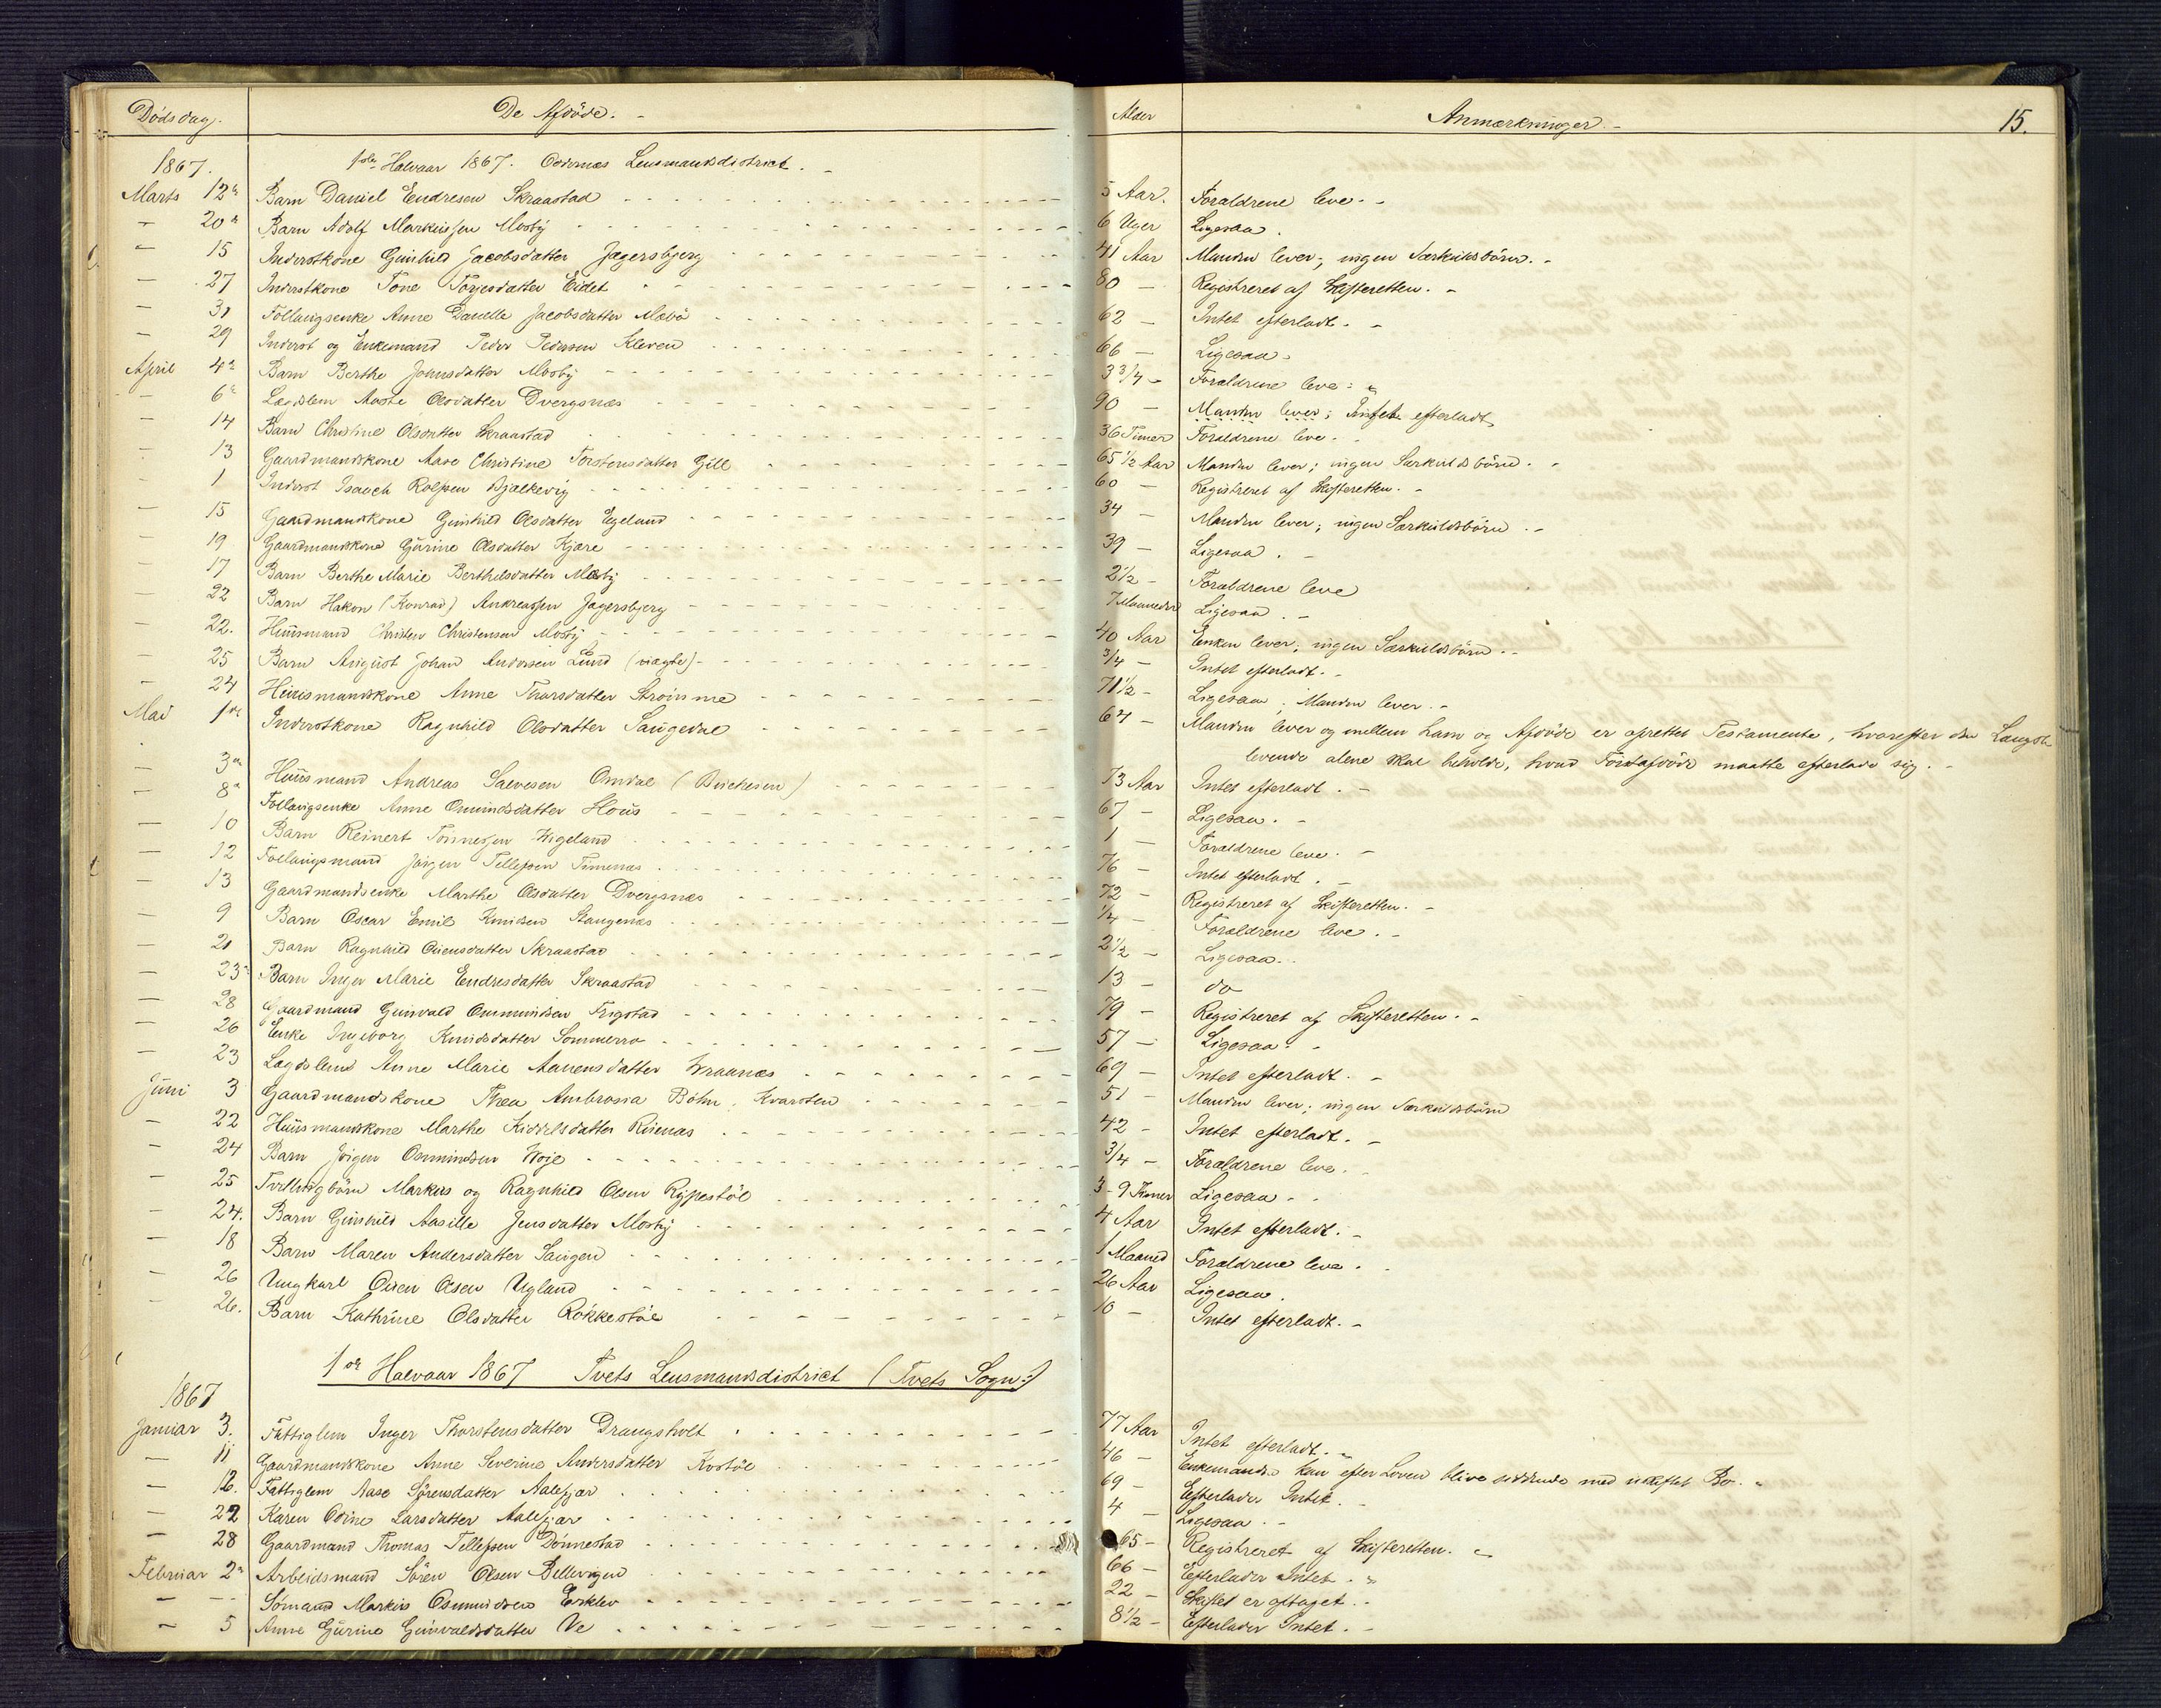 Dödsdag. De Afdöde. Alder Anmærkninger. 15.
1867. 1ste Halvaar 1867. Oddernæs Lensmandsdistrict.
Marts 12te Barn Daniel Endresen Skraastad 5 Aar. Forældrene leve.
— 20de Barn Adolf Markussen Mosby 6 Uger Ligesaa.
— 15 Inderstkone Gunhild Jacobsdatter Jægersbjerg 41 Aar Manden lever; ingen Særkuldsbörn.
— 27 Inderstkone Tone Torjesdatter Eidet 80 — Registreret af Skifteretten.
— 31 Föllaugsenke Anne Danelle Jacobsdatter Mæbö 62 — Intet efterladt.
— 29 Inderst og Enkemand Peder Pedersen Kleven 66 — Ligesaa.
April 4de Barn Berthe Johnsdatter Mosby 3 3/4 — Forældrene leve.
— 6te Lægdslem Aaste Olsdatter Dvergsnæs 90 — Manden lever; Intet efterladt
— 14 Barn Christine Olsdatter Skraastad 36 Timer Forældrene leve.
— 13 Gaardmandskone Aase Christine Torstensdatter Gill 65 1/2 Aar Manden lever; ingen Særkuldsbörn.
— 1 Inderst Isach Rolfsen Bjelkevig 60 — Registreret af Skifteretten.
— 15 Gaardmandskone Gunhild Olsdatter Egeland 34 — Manden lever; ingen Særkuldsbörn.
— 19 Gaardmandskone Gurine Olsdatter Kjære 39 — Ligesaa.
— 17 Barn Berthe Marie Berthelsdatter Mosby 2 1/2 — Forældrene leve
— 22 Barn Hakon (Konrad) Andreassen Jægersbjerg 7 Maaneder Ligesaa.
— 22. Huusmand Christen Christensen Mosby 40 Aar Enken lever; ingen Særkuldsbörn.
— 25 Barn August Johan Andersen Lund (uægte) 3/4 — Intet efterladt.
— 24 Huusmandskone Anne Thorsdatter Strömme 71 1/2 — Ligesaa; Manden lever.
Mai 1ste Inderstkone Ragnhild Olsdatter Saugedal 64 — Manden lever og mellem ham og Afdöde er oprettet Testamente, hvorefter den Længst-
levende alene skal beholde, hvad Förstafdöde maatte efterlade sig.
— 3die Huusmand Andreas Salvesen Omdal 73 Aar Intet efterladt.
— 8de Föllaugsenke Anne Omundsdatter Hous 67 — Ligesaa.
— 10 Barn Reinert Tönnesen Wigeland 1 — Forældrene leve.
— 12 Föllaugsmand Jörgen Tellefsen Timenes 76 — Intet efterladt.
— 13 Gaardmandsenke Marthe Olsdatter Dvergsnæs 72 — Registreret af Skifteretten.
— 9 Barn Oscar Emil Knudsen Stangenæs 1/4 — Forældrene leve.
— 21 Barn Ragnhild Ouensdatter Skraastad 2 1/2 — Ligesaa.
— 23de Barn Inger Marie Endresdatter Skraastad 13 — do
— 28 Gaardmand Gunvald Ommundsen Frigstad 79 — Registreret af Skifteretten.
— 26 Enke Ingeborg Knudsdatter Sommerro 57 — Ligesaa.
— 23 Lægdslem Anne Marie Aanensdatter Kraanæs 69 — Intet efterladt.
Juni 3 Gaardmandskone Thea Ambrosia Böhn, Kvarsten 51 — Manden lever; ingen Særkuldsbörn
— 22 Huusmandskone Marthe Kiddelsdatter Ruenæs 42 — Intet efterladt.
— 24 Barn Jörgen Ommundsen Woje 3/4 — Forældrene leve.
— 25 Tvillingbörn Markus og Ragnhild Olsen Rypestöl 3-9 Timer Ligesaa.
— 24. Barn Gunhild Aasille Jensdatter Mosby 4 Aar Intet efterladt.
— 18 Barn Maren Andersdatter Saugen 1 Maaned Forældrene leve.
— 26 Ungkarl Ouen Olsen Ugland 26 Aar Ligesaa.
— 26. Barn Kathrine Olsdatter Rökkestöl 10 — Intet efterladt.
1ste Halvaar 1867 Tvets Lensmandsdistrict (Tvets Sogn:)
1867
Januar 3. Fattiglem Inger Thorstensdatter Drangsholt 77 Aar Intet efterladt.
— 11 Gaardmandskone Anne Severine Andersdatter Kostöl 46 — Enkemanden kan efter Loven blive siddende med uskiftet Bo.
— 12. Fattiglem Aase Sörensdatter Aalefjær 69 — Efterlader Intet.
— 22 Karen Odine Larsdatter Aalefjær 4 — Ligesaa.
— 28 Gaardmand Thomas Tellefsen Dönnestad 65 — Registreret af Skifteretten.
Februar 2den Arbeidsmand Sören Olsen Bellevigen 66 — Efterlader Intet.
— — Sömand Markus Osmundsen Eseklev 22 — Skiftet er optaget.
— 5 Anne Gurine Gunvaldsdatter Ve 8 1/2 — Efterlader Intet.